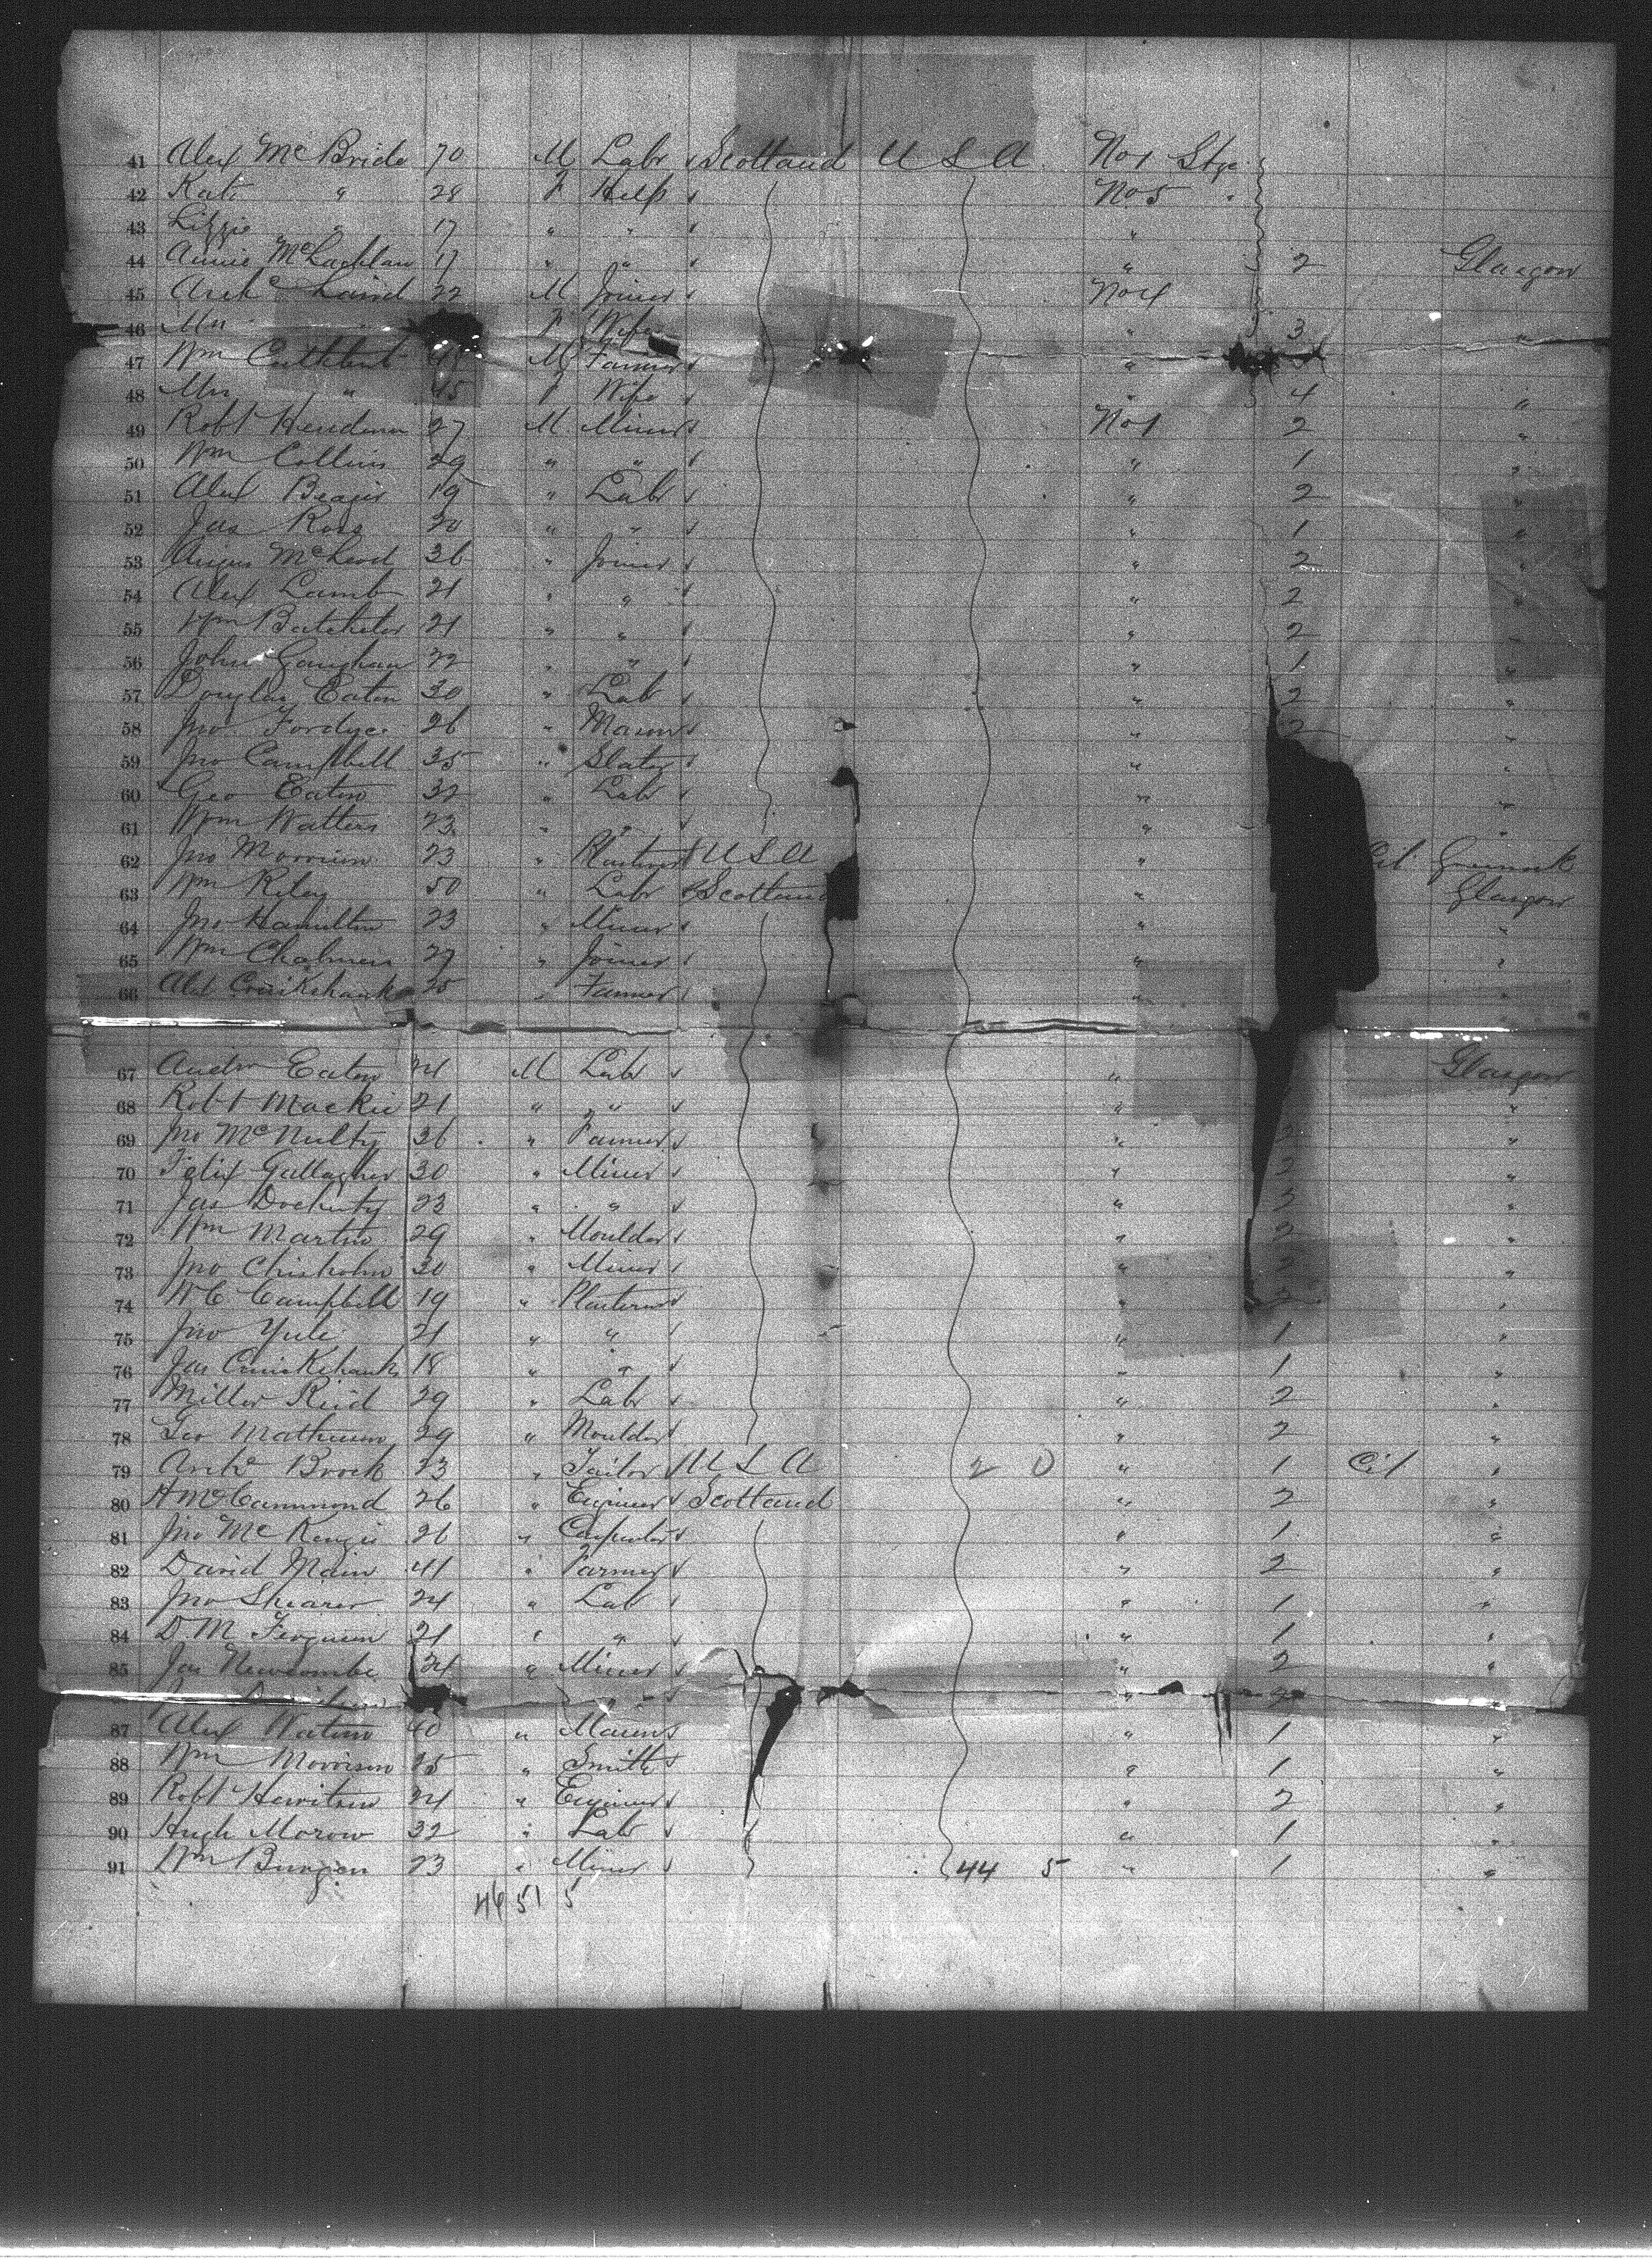 41 Alex McBride 70 M Labr Scotland U S A No 1 Stge
42 Kate " 28 F Help No 5 "
43 Lizzie " 17 " " "
44 Annie McLachlan 17 " " " 2 Glasgow
45 Arch Laird 22 M Joiner No 4
46 Mrs F Wife " 3 "
47 Wm Cuthbert M Farmer "
48 Mrs " 45 F Wife " 4 "
49 Robt 27 M Miner No 1 2 "
50 Wm Collins 29 " " " 1 "
51 Alex 19 " Labr " 2 "
52 Jas Ross 20 " " " 1 "
53 Angus McLeod 36 " Joiner " 2 "
54 Alex Lamb 21 " " " 2 "
55 Wm Batchelor 21 " " " 2 "
56 John Gaughan 22 " " " 1 "
57 Douglas Eaton 30 " Labr " 2 "
58 Jno Fordyce 26 " Mason " 2 "
59 Jno Campbell 35 " Slater " "
60 Geo Eaton 32 " Labr " "
61 Wm Watters 23 " " " "
62 Jno Morrison 23 " Plasterer U S A " Cit Greenock
63 Wm Riley 50 " Labr Scotland " Glasgow
64 Jno Hamilton 23 " Miner " "
65 Wm Chalmers 27 " Joiner " "
66 Alex Cruikshank 25 " Farmer " "
67 Andw Eaton 24 M Labr " Glasgow
68 Robt Mackie 21 " " " "
69 Jno McNulty 36 " Farmer " "
70 Felix Gallagher 30 " Miner " 2 "
71 Jas Docherty 23 " " " 3 "
72 Wm Martin 29 " Moulder " 2 "
73 Jno Chisholm 30 " Miner " 2 "
74 W C Campbell 19 " Plasterer " 2 "
75 Jno Yule 21 " " " 1 "
76 Jas Cruickshank 18 " " " 1 "
77 Miller Reid 29 " Labr " 2 "
78 Geo Matheson 29 " Moulder " 2 "
79 Archd Brock 23 " Tailor U S A 2 0 " 1 Cit "
80 H McCammond 26 " Engineer Scotland " 2 "
81 Jno McKenzie 26 " Carpenter " 1 "
82 David Main 41 " Farmer " 2 "
83 Jno Shearer 24 " Lab " 1 "
84 D M Ferguson 21 " " " 1 "
85 Jas Newcombe 24 " Miner " 2 "
87 Alex Watson 40 " Mason " 1 "
88 Wm Morrison 25 " Smith " 1 "
89 Robt Hewitson 24 " Engineer " 2 "
90 Hugh Morow 32 " Labr " 1 "
91 Wm 23 " Miner 44 5 " 1 "
46 51 5